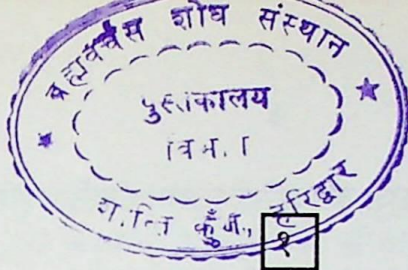 ब्रह्मवर्चस शोध संस्थान
पुस्तकालय
विभाग
शान्ति कुँज, हरिद्वार
१